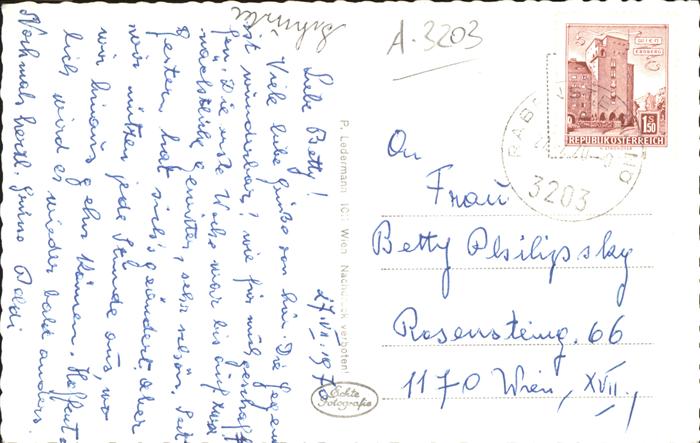 A-3203
WIEN
ERDBERG
S 1.50
REPUBLIK ÖSTERREICH
3203
Liebe Betty!
27.VII 1970
Viele liebe Grüße von hier. Die Gegend
ist wunderbar, wie für mich geschaf-
fen. Die erste Woche war bis auf zwei
nächtliche Gewitter, sehr schön. Seit
gestern hat sich's geändert. Aber
wir nützen jede Stunde aus, wo
wir hinaus gehn können. Hoffent-
lich wird es wieder bald anders.
Nochmals herzl. Grüße Poldi
P. Ledermann Wien Nachdruck verboten!
Echte
Fotografie
An
Frau
Betty Philipssky
Rosensteing. 66
1170 Wien, XVII.